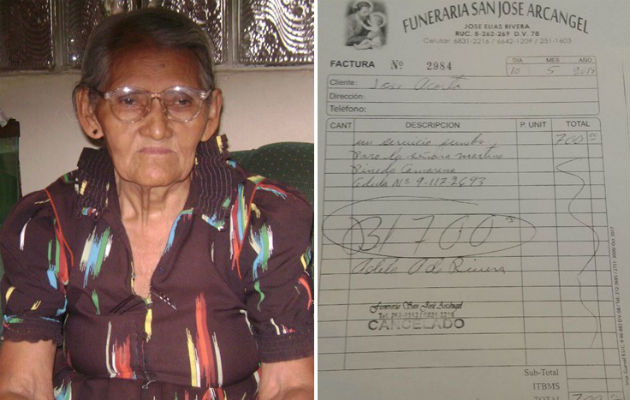 FUNERARIA SAN JOSE ARCANGEL
JOSE ELIAS RIVERA
RUC. 8-262-269 D.V. 78
Celular: 6831-2216 / 6642-1209 / 251-1603
FACTURA Nº 2984
DIA MES AÑO
10 5 2014
Cliente: Jose Acosta
Dirección:
Teléfono:
CANT DESCRIPCION P. UNIT TOTAL
un servicio funebre 700 00
Para la señora
Pineda Camarena
Cédula Nº 9-117-2693
B/ 700 00
de Rivera
Funeraria San José Arcángel
CANCELADO
Sub-Total
ITBMS
700